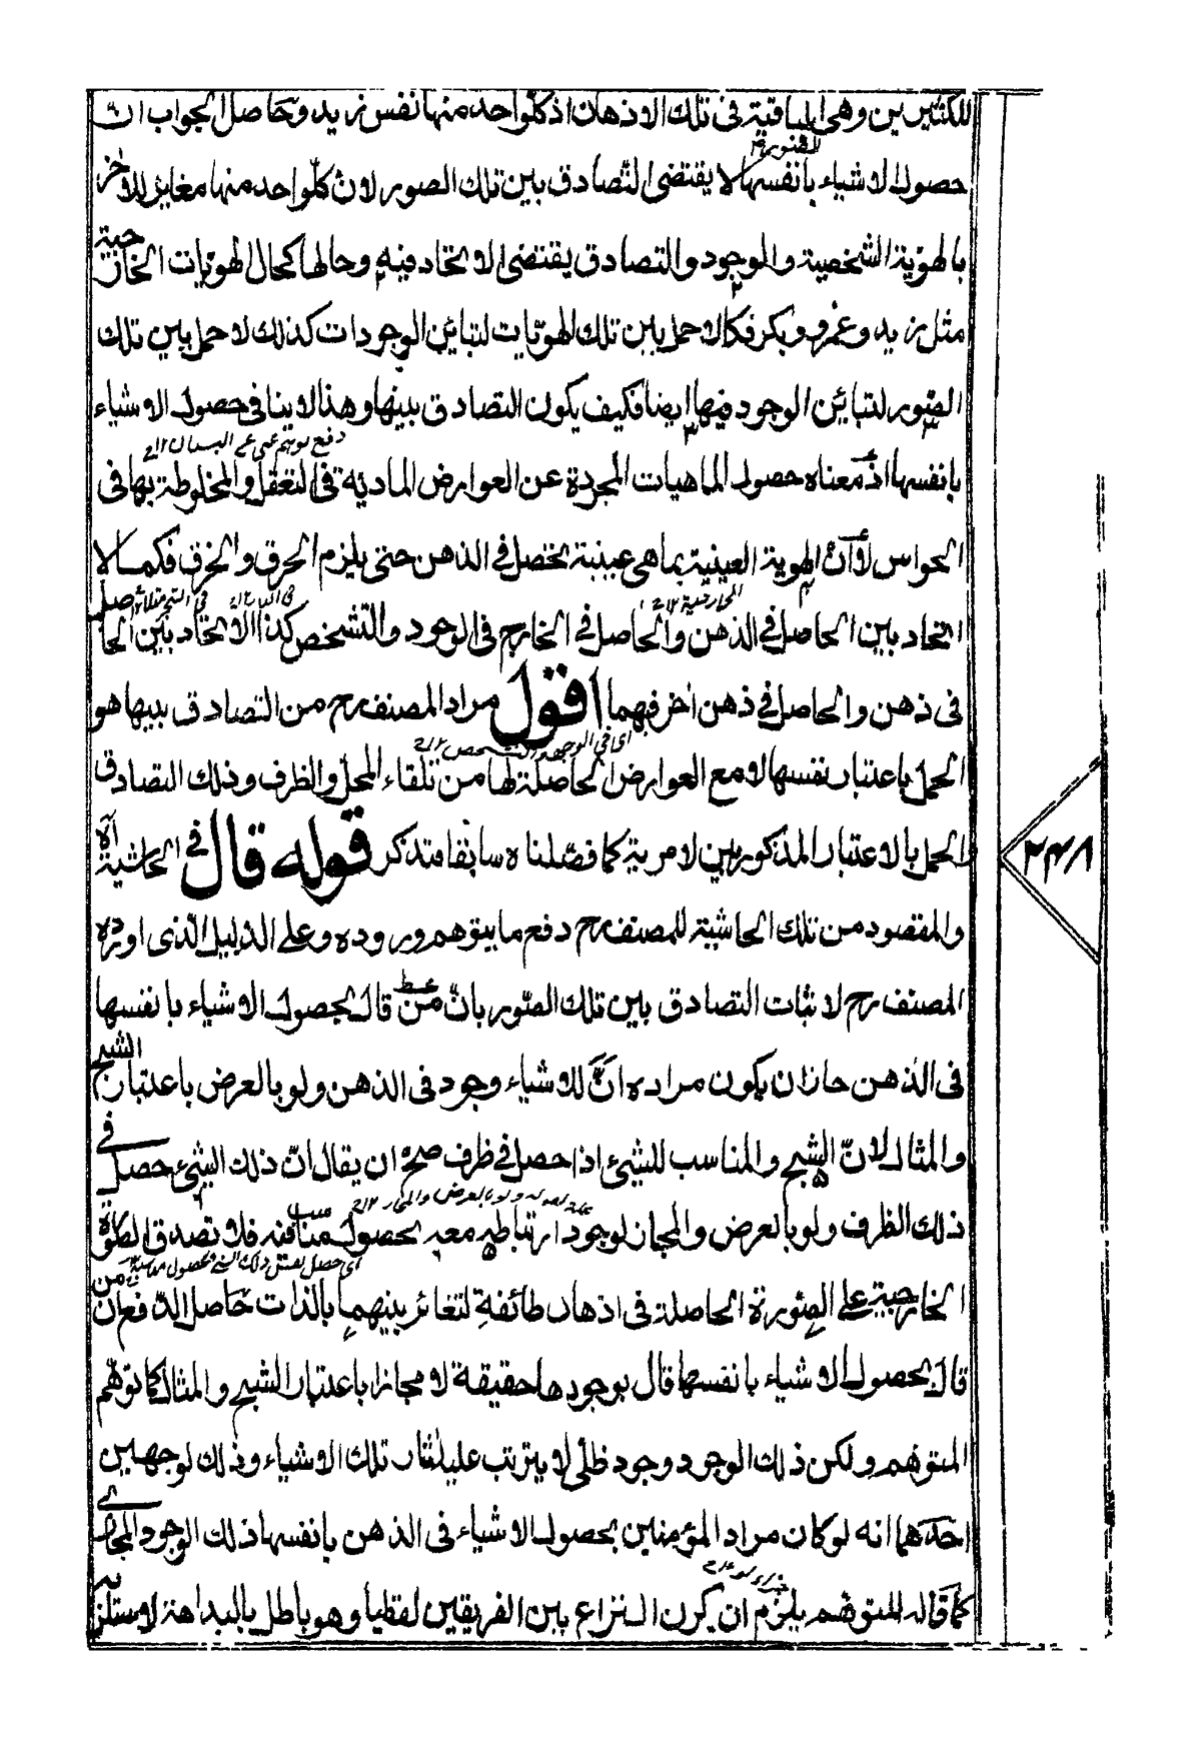 للكثيرين وهى الباقية فى تلك الاذهان اذ كلواحد منها نفس زيد وحاصل الجواب ان
حصول الاشياء بانفسها لا يقتضى التصادق بين تلك الصور لان كلواحد منها مغاير للاخر
بالهوية الشخصية والوجود والتصادق يقتضى الاتحاد فيه وحالها كحال الهويات الخارجية
مثل زيد وعمرو وبكر فكما لا حمل بين تلك الهويات لتبائن الوجودات كذلك لا حمل بين تلك
الصور لتبائن الوجود فيها ايضا فكيف يكون التصادق بينها وهذا لا ينافى حصول الاشياء
بانفسها اذ معناه حصول الماهيات المجردة عن العوارض المادية فى التعقل والمخلوطة بها فى
الحواس لا ان الهوية العينية بما هى عينية تحصل فى الذهن حتى يلزم الحرق والخرق فكما لا
اتحاد بين الحاصل فى الذهن والحاصل فى الخارج فى الوجود والتشخص كذا الاتحاد بين الحاصل
فى ذهن والحاصل فى ذهن اخر فيهما اقول مراد المصنف رح من التصادق بينها هو
الحمل باعتبار نفسها لا مع العوارض الحاصلة لها من تلقاء المحل والظرف وذلك التصادق
الحمل بالاعتبار المذكور بين لا مرية كما فصلنا ه سابقا فتذكر قوله قال فى الحاشية اه
والمقصود من تلك الحاشية للمصنف رح دفع ما يتوهم وروده وعلى الدليل الذى اورده
المصنف رح لاثبات التصادق بين تلك الصور بان من قال بحصول الاشياء بانفسها
فى الذهن جاز ان يكون مراده ان للاشياء وجود فى الذهن ولو بالعرض باعتبار الشبح
والمثال لان الشبح والمناسب للشيئ اذا حصل فى ظرف صح ان يقال ان ذلك الشيئ حصل فى
ذلك الظرف ولو بالعرض والمجاز لوجود ارتباطه معه بحصول مناسبه فلا تصدق الصورة
الخارجية على الصورة الحاصلة فى اذهان طائفة لتغائر بينهما بالذات حاصل الدفع ان من
قال بحصول الاشياء بانفسها قال بوجودها حقيقة لا مجازا باعتبار الشبح والمثال كما توهم
المتوهم ولكن ذلك الوجود وجود ظلى لا يترتب عليه اثار تلك الاشياء وذلك لوجهين
احدهما انه لو كان مراد المؤمنين بحصول الاشياء فى الذهن بانفسها ذلك الوجود المجازى
كما قاله المتوهم يلزم ان يكون النزاع بين الفريقين لفظيا وهو باطل بالبداهة لاستلزامه
٢٤٨